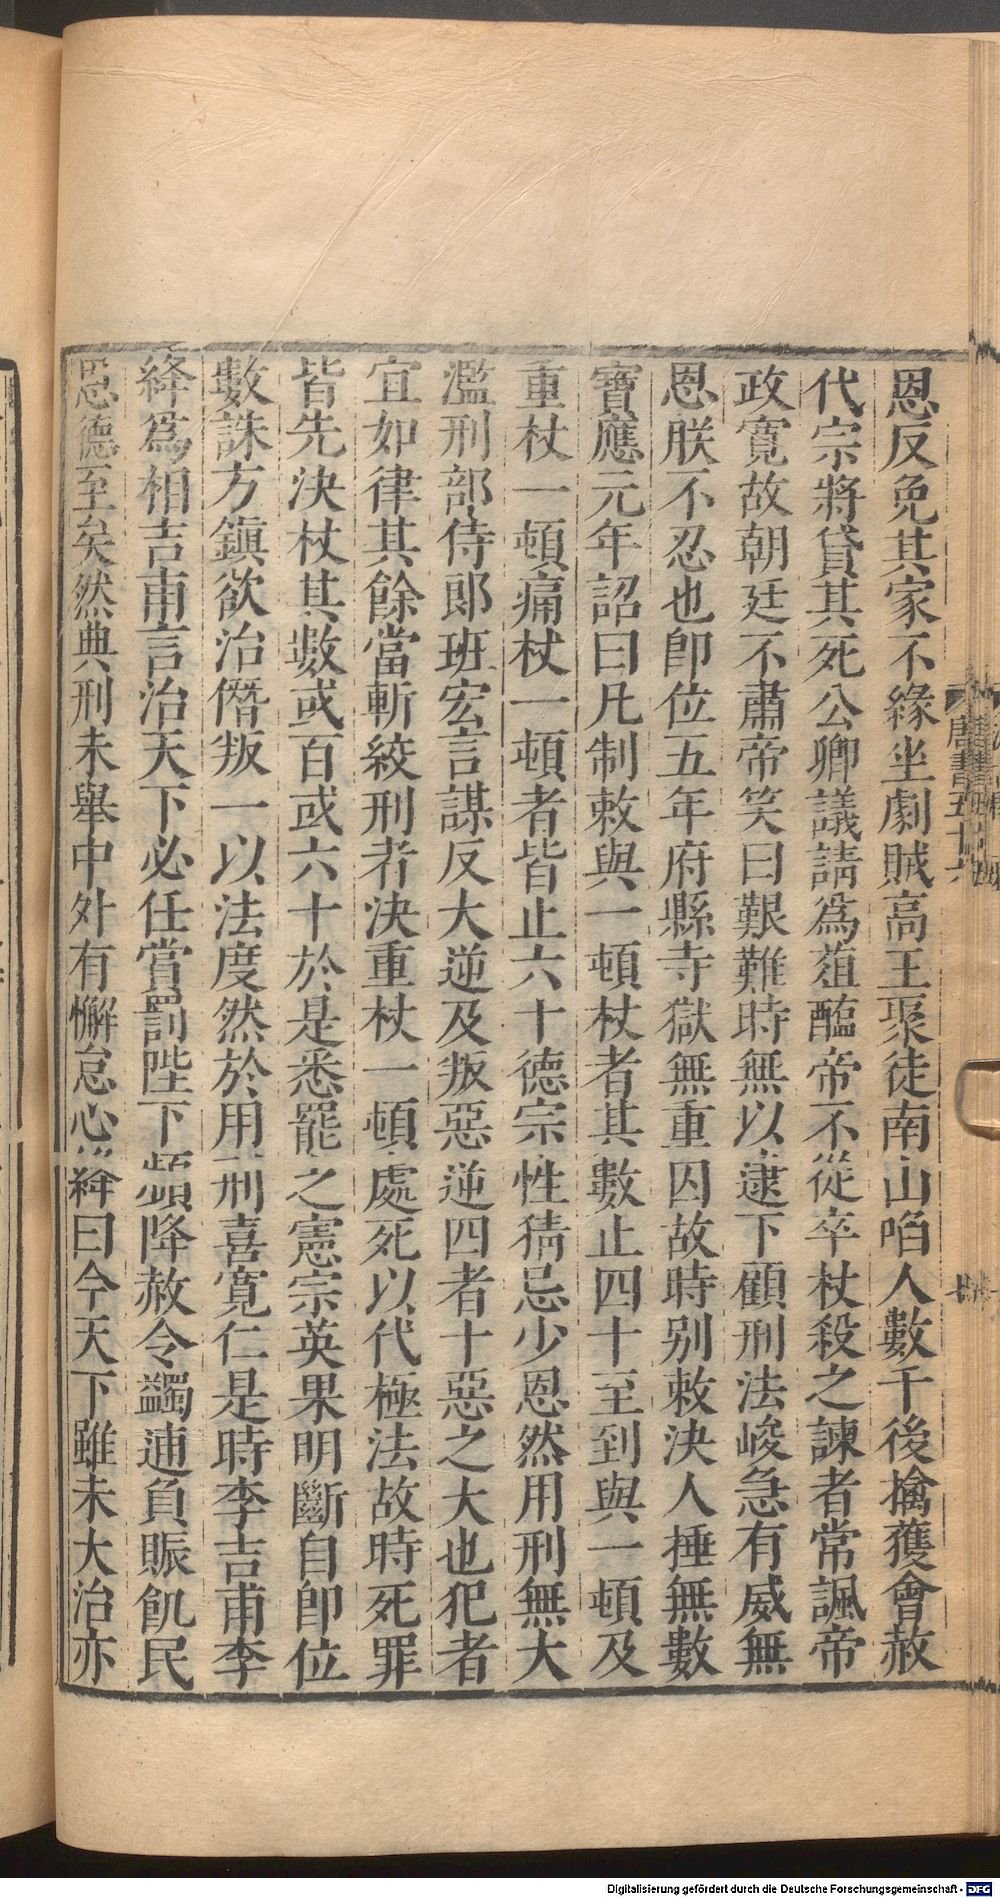 恩反免其家不緣坐劇賊高玉聚徒南山啗人數千後擒獲會赦
代宗將貸其死公卿議請爲葅醢帝不從卒杖殺之諫者常諷帝
政寬故朝廷不肅帝笑曰艱難時無以逮下顧刑法峻急有威無
恩朕不忍也卽位五年府縣寺獄無重囚故時别敕決人捶無數
寶應元年詔曰凡制敕與一頓杖者其數止四十至到與一頓及
重杖一頓痛杖一頓者皆止六十德宗性猜忌少恩然用刑無大
濫刑部侍郎班宏言謀反大逆及叛惡逆四者十惡之大也犯者
宜如律其餘當斬絞刑者決重杖一頓處死以代極法故時死罪
皆先決杖其數或百或六十於是悉罷之憲宗英果明斷自卽位
數誅方鎭欲治僭叛一以法度然於用刑喜寬仁是時李吉甫李
絳爲相吉甫言治天下必任賞罰陛下頻降赦令蠲逋負賑飢民
恩德至矣然典刑未舉中外有懈怠心絳曰今天下雖未大治亦
唐書五十六
Digitalisierung gefördert durch die Deutsche Forschungsgemeinschaft - DFG